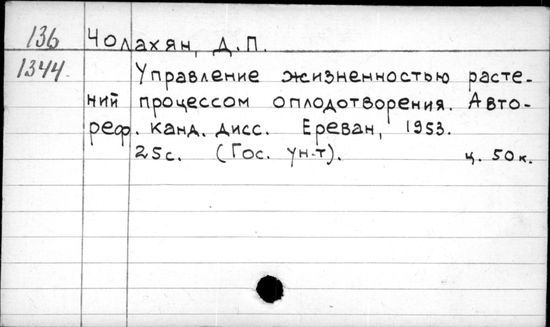 136 Чолахян, Д.П.
1344. Управление жизненностью расте-
ний процессом оплодотворения. Авто-
реф. канд. дисс. Ереван, 1953.
25с. (Гос. ун-т). ц. 50 к.